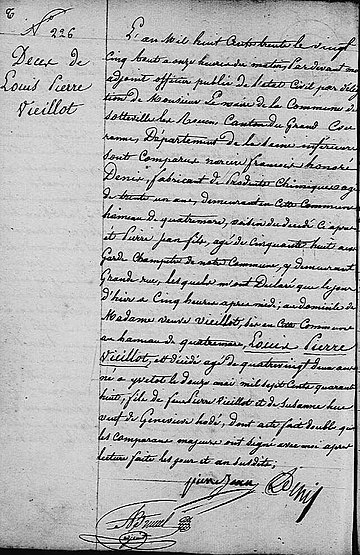 N° 226
Décès de
Louis Pierre
Vieillot
L'an Mil huit Cent trente le vingt
Cinq à onze heures du matin, Par devant
adjoint officier public de l'état Civil par
tion de Monsieur Le maire de la Commune de
Sotteville les Rouen, Canton du Grand Cou
ronne, Département de la Seine inférieure
sont Comparus francois honoré
Denis, fabricant de Produits Chimiques agé
de trente un ans, demeurant en Cette Commune
hameau de quatremare, voisin du décédé Ci après
et Pierre jean fils, agé de Cinquante huit ans
Gard Champetre de notre Commune, y demeurant
Grande rue, les quels m'ont Déclaré que le jour
d'hier à Cinq heures apres midi, au domicile de
Madame veuve vieillot, sis en Cette Commune
au hameau de quatremare, Louis Pierre
Vieillot, est décédé agé de quatre vingt deux ans
né a yvetot le douze mai mil sept Cents quarante
huit, fils de feu Pierre Vieillot et de susanne
veuf de Genevieve hodé, dont acte fait double que
les comparans majeurs ont signé avec moi apres
lecture faite les jour et an susdits,
pierre jean Denis